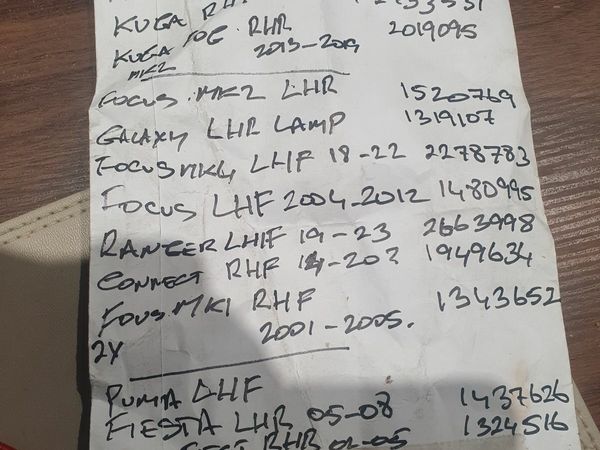 KUGA
KUGA TOG RHR 2019095
MK2 2013-2019
FOCUS MK2 LHR 1520769
GALAXY LHR LAMP 1319107
FOCUS MK4 LHF 18-22 2278783
FOCUS LHF 2004-2012 1480995
RANGER LHF 19-23 2663998
CONNECT RHF 14-20? 1949634
FOUS MK1 RHF 1343652
2001-2005.
2X
PUMA LHF 1437626
FIESTA LHR 05-08 1324516
RHR 02-05